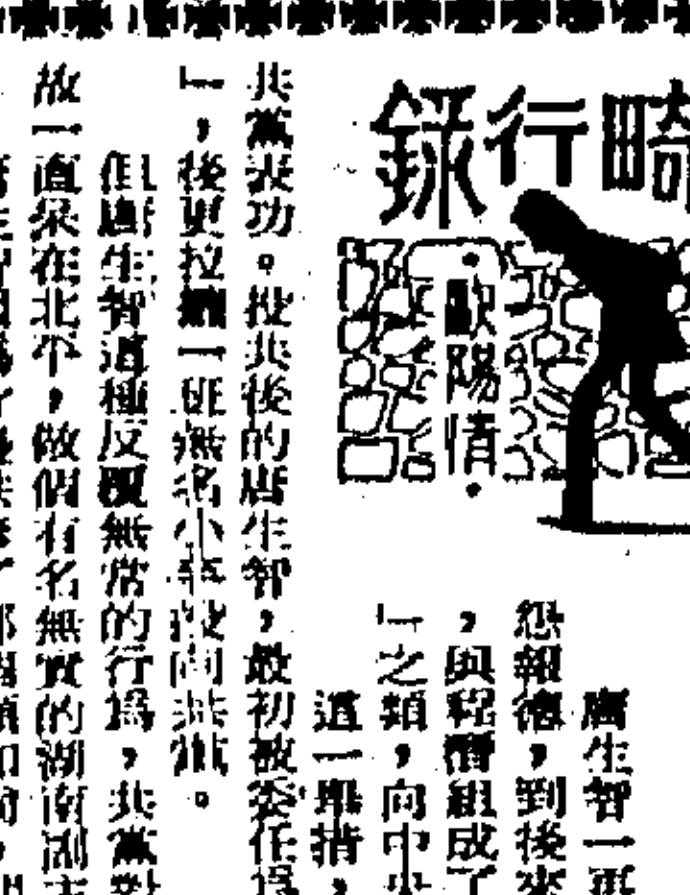 畸行錄
歐陽情
唐生智一再
怨報德,到後來
,與程潛組成了
」之類,向中央
這一舉措,
共黨表功。投共後的唐生智,最初被委任爲
」,後更拉攏一班無名小卒投向共黨。
但唐生智這種反覆無常的行爲,共黨對
故一直呆在北平,做個有名無實的湖南副主